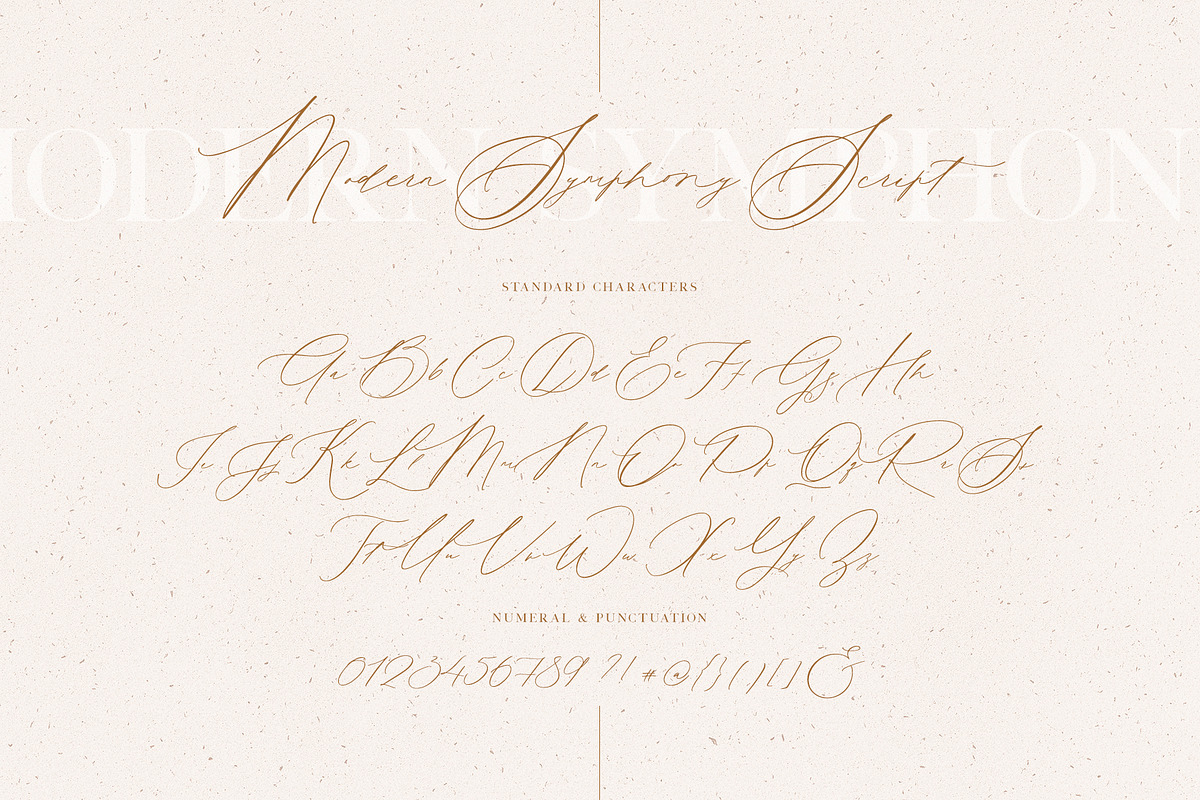 MODERN SYMPHON
Modern Symphony Script
STANDARD CHARACTERS
Aa Bb Cc Dd Ee Ff Gg Hh
Ii Jj Kk Ll Mm Nn Oo Pp Qq Rr Ss
Tt Uu Vv Ww Xx Yy Zz
NUMERAL & PUNCTUATION
0123456789 ?! # @ {} () [] &